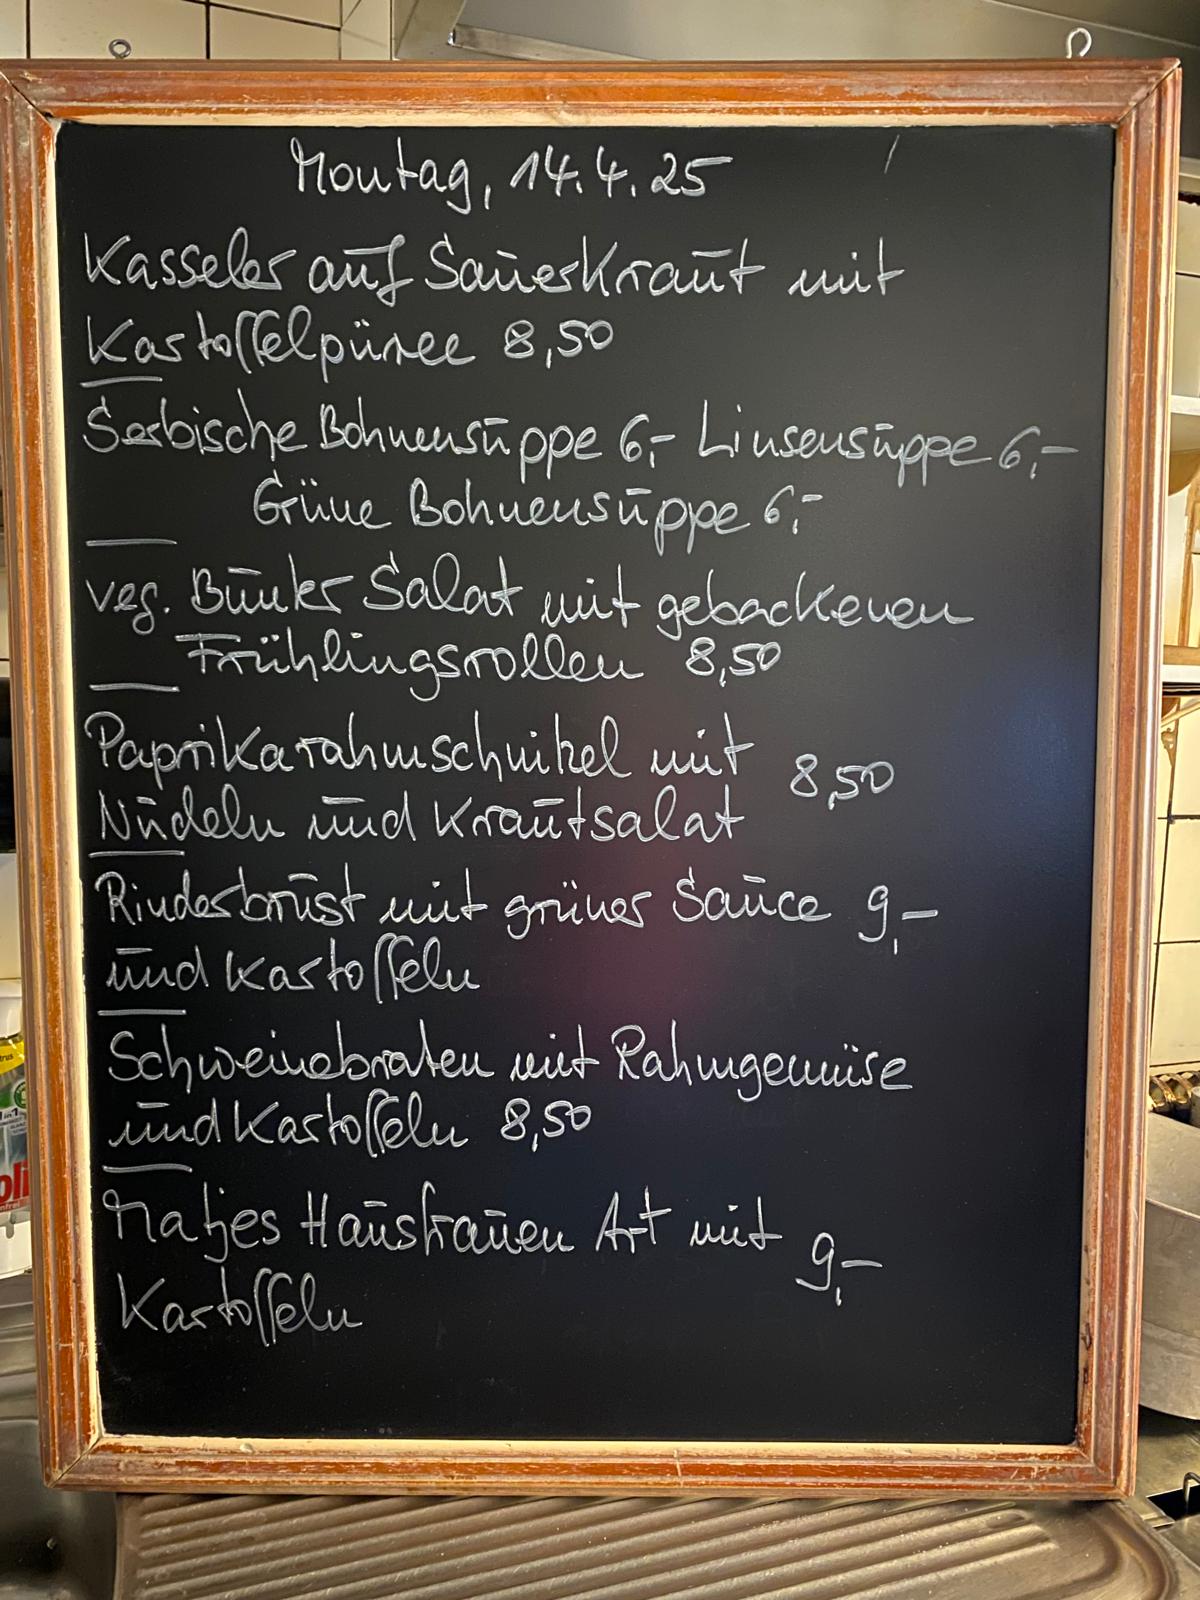 Montag, 14.4.25
Kasseler auf Sauerkraut mit
Kartoffelpüree 8,50
Serbische Bohnensuppe 6,- Linsensuppe 6,-
Grüne Bohnensuppe 6,-
veg. Bunter Salat mit gebackenen
Frühlingsrollen 8,50
Paprikarahmschnitzel mit 8,50
Nudeln und Krautsalat
Rinderbrust mit grüner Sauce 9,-
und Kartoffeln
Schweinebraten mit Rahmgemüse
und Kartoffeln 8,50
Matjes Hausfrauen Art mit 9,-
Kartoffeln